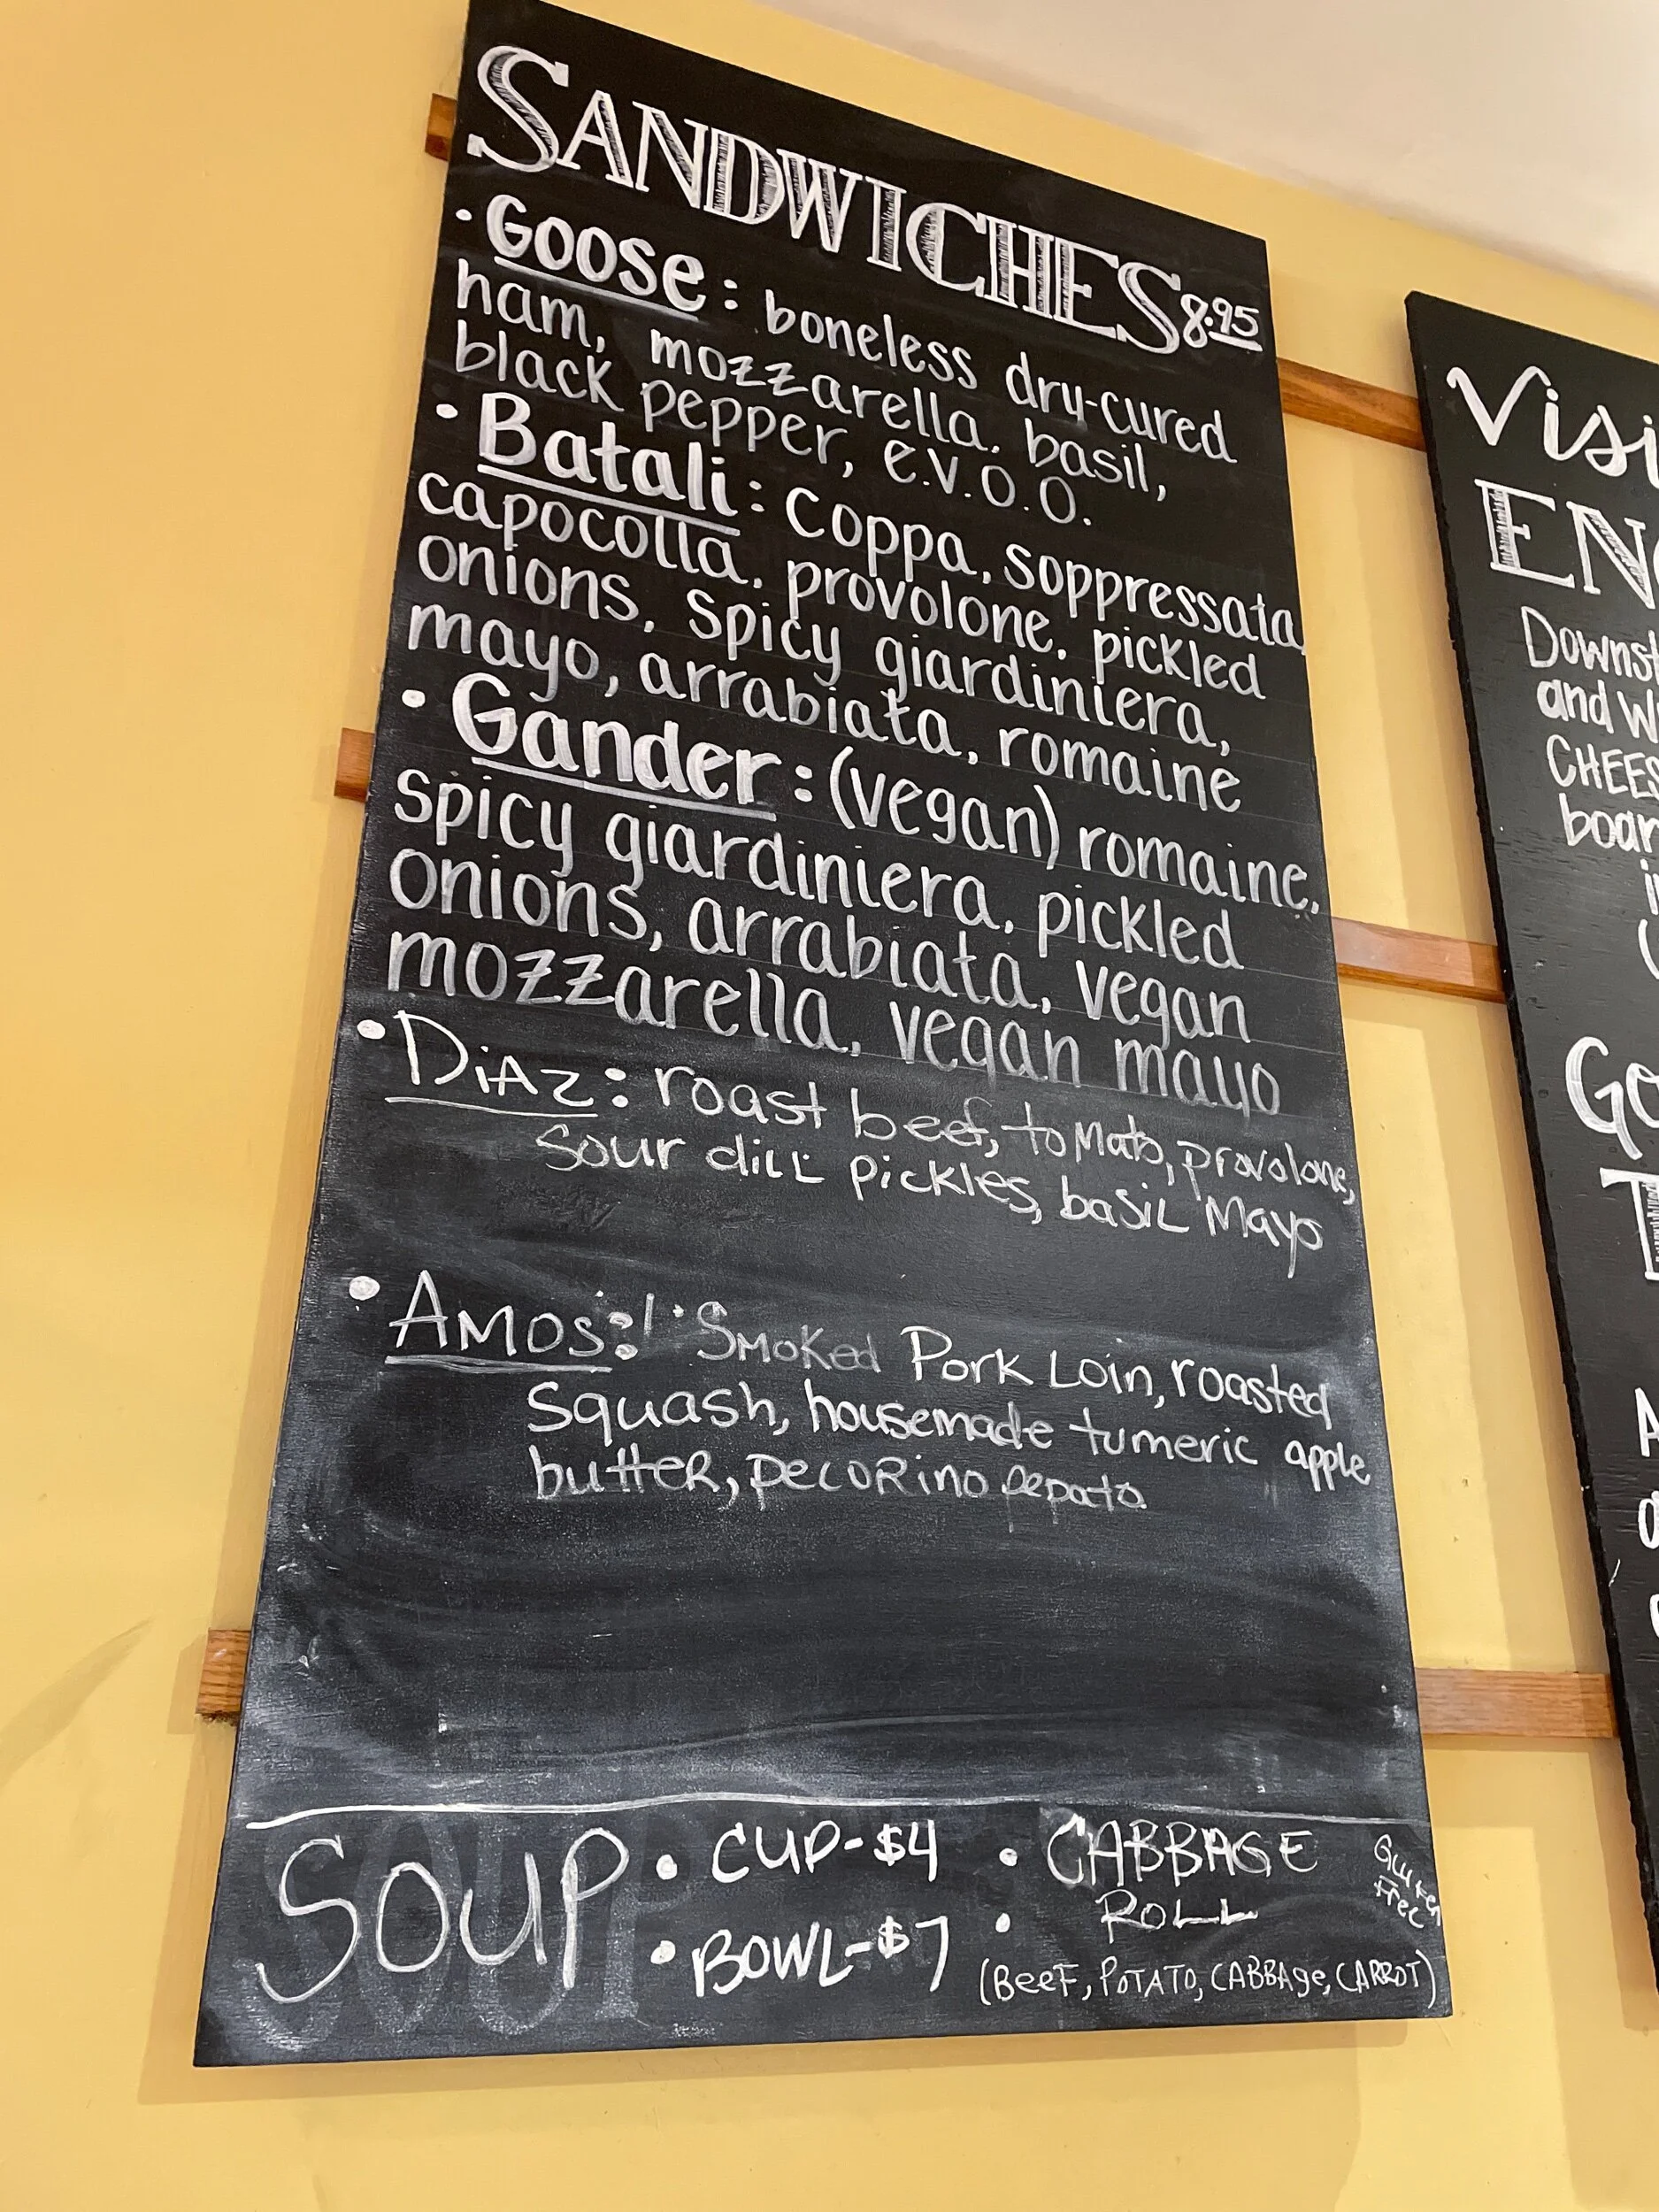 SANDWICHES 8.95
• Goose: boneless dry-cured
ham, mozzarella, basil,
black pepper, e.v.o.o.
• Batali: coppa, soppressata,
capocolla, provolone, pickled
onions, spicy giardiniera,
mayo, arrabiata, romaine
• Gander: (vegan) romaine,
spicy giardiniera, pickled
onions, arrabiata, vegan
mozzarella, vegan mayo
• DiAZ: roast beef, toMato, provolone,
sour diLL pickles, basiL Mayo
• AMOS: SMoKed Pork Loin, roasted
squash, housemade tumeric apple
butteR, pecoRino pepato
SOUP • CUP-$4 • CABBAGE
ROLL
Gluten
Free
• BOWL-$7 •
(BeeF, POTATO, CABBAge, CARROT)
Visi
EN
Downst
and W
CHEES
boar